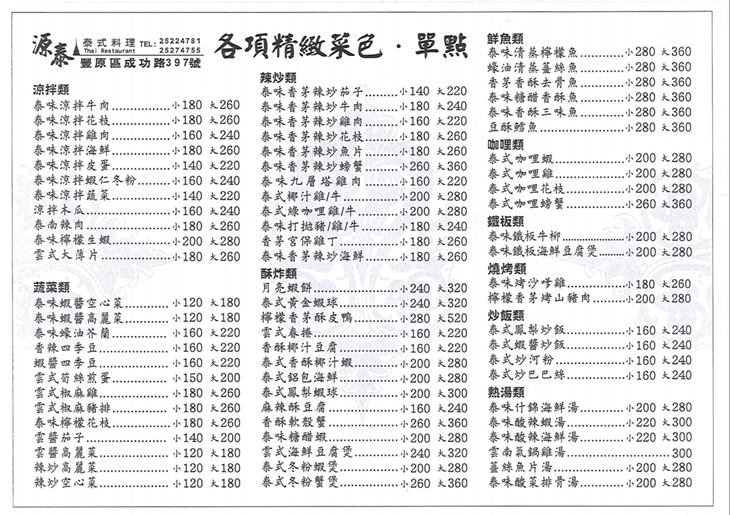 源泰 泰式料理 TEL: 25224781
Thai Restaurant 25274755
豐原區成功路397號
各項精緻菜色・單點
涼拌類
泰味涼拌牛肉........小180 大260
泰味涼拌花枝........小180 大260
泰味涼拌雞肉........小160 大240
泰味涼拌海鮮........小180 大260
泰味涼拌皮蛋........小140 大220
泰味涼拌蝦仁冬粉....小160 大240
泰味涼拌蔬菜........小140 大220
涼拌木瓜............小160 大240
泰南辣肉............小180 大260
泰味檸檬生蝦........小200 大280
雲式大薄片..........小180 大260
蔬菜類
泰味蝦醬空心菜......小120 大180
泰味蝦醬高麗菜......小120 大180
泰味蠔油芥蘭........小160 大220
香辣四季豆..........小160 大220
蝦醬四季豆..........小160 大220
雲式筍絲煎蛋........小150 大200
雲式椒麻雞..........小180 大260
雲式椒麻豬排........小180 大260
泰味檸檬花枝........小180 大260
雲醬茄子............小140 大200
雲醬高麗菜..........小120 大180
辣炒高麗菜..........小120 大180
辣炒空心菜..........小120 大180
辣炒類
泰味香茅辣炒茄子....小140 大220
泰味香茅辣炒牛肉....小180 大240
泰味香茅辣炒雞肉....小160 大220
泰味香茅辣炒花枝....小180 大260
泰味香茅辣炒魚片....小180 大260
泰味香茅辣炒螃蟹....小260 大360
泰味九層塔雞肉......小160 大220
泰式椰汁雞/牛.......小200 大280
泰式綠咖哩雞/牛.....小200 大280
泰味打拋豬/雞/牛....小180 大240
香茅宮保雞丁........小180 大260
泰味香茅辣炒海鮮....小180 大260
酥炸類
月亮蝦餅............小240 大320
泰式黃金蝦球........小240 大320
檸檬香茅酥皮鴨......小280 大520
雲式春捲............小160 大220
香酥椰汁豆腐........小160 大220
泰式香酥椰汁蝦......小200 大280
泰式鋁包海鮮........小200 大280
泰式鳳梨蝦球........小200 大300
麻辣酥豆腐..........小160 大240
香酥軟殼蟹..........小260 大360
泰味糖醋蝦..........小200 大280
雲式海鮮豆腐煲......小240 大320
泰式冬粉蝦煲........小200 大280
泰式冬粉蟹煲........小260 大360
鮮魚類
泰味清蒸檸檬魚......小280 大360
蠔油清蒸薑絲魚......小280 大360
香茅香酥去骨魚......小280 大360
泰味糖醋香酥魚......小280 大360
泰味香酥三味魚......小280 大360
豆酥鱈魚............小280 大360
咖哩類
泰式咖哩蝦..........小200 大280
泰式咖哩雞..........小200 大280
泰式咖哩花枝........小200 大280
泰式咖哩螃蟹........小260 大360
鐵板類
泰味鐵板牛柳........小200 大280
泰味鐵板海鮮豆腐煲..小200 大280
燒烤類
泰味烤沙嗲雞........小180 大260
檸檬香茅烤山豬肉....小200 大280
炒飯類
泰式鳳梨炒飯........小160 大240
泰式蝦醬炒飯........小160 大240
泰式炒河粉..........小160 大240
泰式炒巴巴絲........小160 大240
熱湯類
泰味什錦海鮮湯......小200 大280
泰味酸辣蝦湯........小220 大300
泰味酸辣海鮮湯......小220 大300
雲南氣鍋雞湯........300
薑絲魚片湯..........小200 大280
泰味酸菜排骨湯......小200 大280